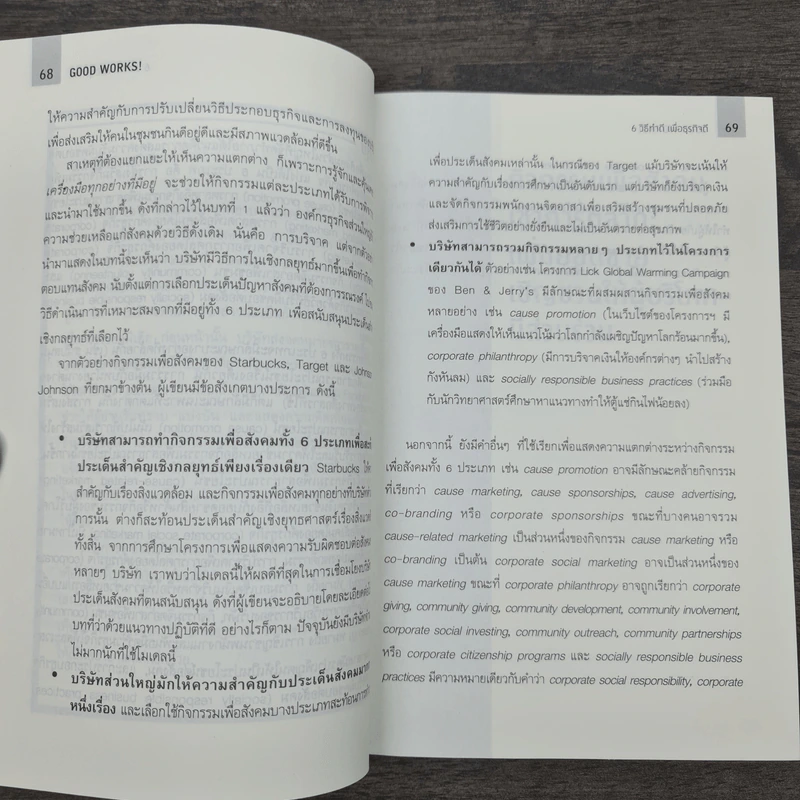 68 GOOD WORKS!
ให้ความสำคัญกับการปรับเปลี่ยนวิธีประกอบธุรกิจและการลงทุนของ
เพื่อส่งเสริมให้คนในชุมชนกินดีอยู่ดีและมีสภาพแวดล้อมที่ดีขึ้น
สาเหตุที่ต้องแยกแยะให้เห็นความแตกต่าง ก็เพราะการรู้จักและ
เครื่องมือทุกอย่างที่มีอยู่ จะช่วยให้กิจกรรมแต่ละประเภทได้รับการ
และนำมาใช้มากขึ้น ดังที่กล่าวไว้ในบทที่ 1 แล้วว่า องค์กรธุรกิจส่วนใหญ่
ความช่วยเหลือแก่สังคมด้วยวิธีดั้งเดิม นั่นคือ การบริจาค แต่จาก
นำมาแสดงในบทนี้จะเห็นว่า บริษัทมีวิธีการในเชิงกลยุทธ์มากขึ้นเพื่อ
ตอบแทนสังคม นับตั้งแต่การเลือกประเด็นปัญหาสังคมที่ต้องการรณรงค์
วิธีดำเนินการที่เหมาะสมจากที่มีอยู่ทั้ง 6 ประเภท เพื่อสนับสนุนประเด็น
เชิงกลยุทธ์ที่เลือกไว้
จากตัวอย่างกิจกรรมเพื่อสังคมของ Starbucks, Target และ Johnson
Johnson ที่ยกมาข้างต้น ผู้เขียนมีข้อสังเกตบางประการ ดังนี้
• บริษัทสามารถทำกิจกรรมเพื่อสังคมทั้ง 6 ประเภทเพื่อ
ประเด็นสำคัญเชิงกลยุทธ์เพียงเรื่องเดียว Starbucks
สำคัญกับเรื่องสิ่งแวดล้อม และกิจกรรมเพื่อสังคมทุกอย่างที่บริษัท
การนั้น ต่างก็สะท้อนประเด็นสำคัญเชิงยุทธศาสตร์เรื่องสิ่งแวดล้อม
ทั้งสิ้น จากการศึกษาโครงการเพื่อแสดงความรับผิดชอบต่อสังคม
หลายๆ บริษัท เราพบว่าโมเดลนี้ให้ผลดีที่สุดในการเชื่อมโยงบริษัท
ประเด็นสังคมที่ตนสนับสนุน ดังที่ผู้เขียนจะอธิบายโดยละเอียด
บทที่ว่าด้วยแนวทางปฏิบัติที่ดี อย่างไรก็ตาม ปัจจุบันยังมีบริษัท
ไม่มากนักที่ใช้โมเดลนี้
• บริษัทส่วนใหญ่มักให้ความสำคัญกับประเด็นสังคม
หนึ่งเรื่อง และเลือกใช้กิจกรรมเพื่อสังคมบางประเภทสะท้อน
6 วิธีทำดี เพื่อธุรกิจดี 69
เพื่อประเด็นสังคมเหล่านั้น ในกรณีของ Target แม้บริษัทจะเน้นให้
ความสำคัญกับเรื่องการศึกษาเป็นอันดับแรก แต่บริษัทก็ยังบริจาคเงิน
และจัดกิจกรรมพนักงานจิตอาสาเพื่อเสริมสร้างชุมชนที่ปลอดภัย
ส่งเสริมการใช้ชีวิตอย่างยั่งยืนและไม่เป็นอันตรายต่อสุขภาพ
• บริษัทสามารถรวมกิจกรรมหลายๆ ประเภทไว้ในโครงการ
เดียวกันได้ ตัวอย่างเช่น โครงการ Lick Global Warming Campaign
ของ Ben & Jerry's มีลักษณะที่ผสมผสานกิจกรรมเพื่อสังคม
หลายอย่าง เช่น cause promotion (ในเว็บไซต์ของโครงการฯ มี
เครื่องมือแสดงให้เห็นแนวโน้มว่าโลกกำลังเผชิญปัญหาโลกร้อนมากขึ้น),
corporate philanthropy (มีการบริจาคเงินให้องค์กรต่างๆ นำไปสร้าง
กังหันลม) และ socially responsible business practices (ร่วมมือ
กับนักวิทยาศาสตร์ศึกษาหาแนวทางทำให้ตู้แช่กินไฟน้อยลง)
นอกจากนี้ ยังมีคำอื่นๆ ที่ใช้เรียกเพื่อแสดงความแตกต่างระหว่างกิจกรรม
เพื่อสังคมทั้ง 6 ประเภท เช่น cause promotion อาจมีลักษณะคล้ายกิจกรรม
ที่เรียกว่า cause marketing, cause sponsorships, cause advertising,
co-branding หรือ corporate sponsorships ขณะที่บางคนอาจรวม
cause-related marketing เป็นส่วนหนึ่งของกิจกรรม cause marketing หรือ
co-branding เป็นต้น corporate social marketing อาจเป็นส่วนหนึ่งของ
cause marketing ขณะที่ corporate philanthropy อาจถูกเรียกว่า corporate
giving, community giving, community development, community involvement,
corporate social investing, community outreach, community partnerships
หรือ corporate citizenship programs และ socially responsible business
practices มีความหมายเดียวกับคำว่า corporate social responsibility, corporate